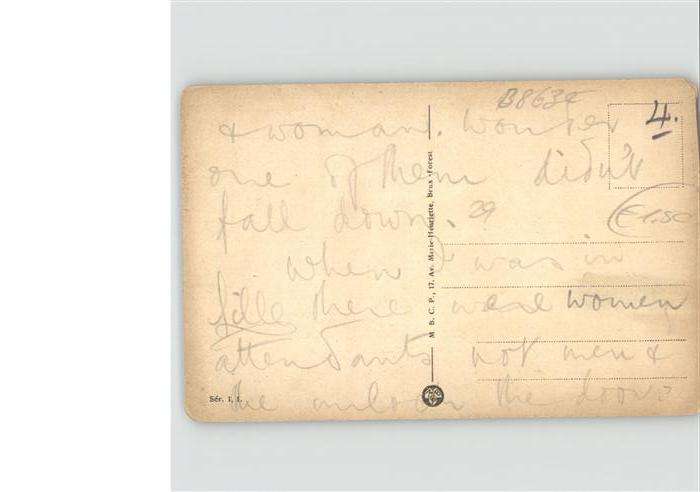 B8634
4.
& woman. Wonder
one of them didn't
fall down. 29
€1.50
when I was in
fille there were women
attendants not men &
the unlock the doors
M B. C. P., 17, Av. Marie-Henriette, Brux.-Forest.
Sér. I, 1.